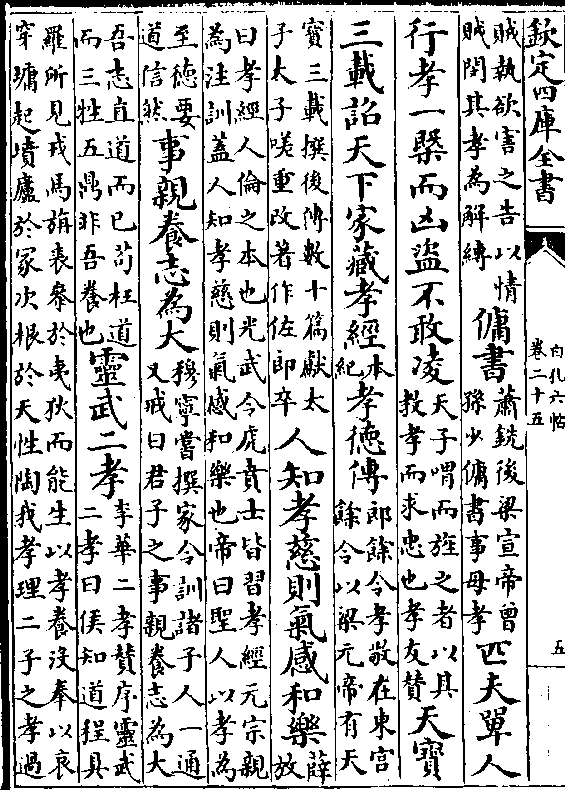 欽定四庫全書
白孔六帖
卷二十五
五
賊執欲害之告以情
賊閔其孝為解縛
傭書
蕭銑後梁宣帝曾
孫少傭書事母孝
匹夫單人
行孝一槩而凶盜不敢凌
天子喟而旌之者以其
教孝而求忠也孝友贊
天寶
三載詔天下家藏孝經
本
紀
孝德傳
郎餘令孝敬在東宮
餘令以梁元帝有天
寶三載撰後傳數十篇獻太
子太子嗟重改著作佐郎卒
人知孝慈則氣感和樂
薛
放
曰孝經人倫之本也光武令虎賁士皆習孝經元宗親
為注訓蓋人知孝慈則氣感和樂也帝曰聖人以孝為
至德要
道信然
事親養志為大
穆寧嘗撰家令訓諸子人一通
又戒曰君子之事親養志為大
吾志直道而已苟枉道
而三牲五鼎非吾養也
靈武二孝
李華二孝贊序靈武
二孝曰侯知道程具
羅所見戎馬旃裘參於夷狄而能生以孝養沒奉以哀
穿墉起墳廬於冢次根於天性陶我孝理二子之孝過